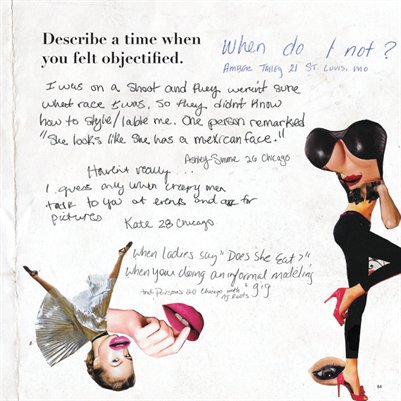 Describe a time when
you felt objectified.
When do I not?
Amber Talley 21 St. Louis, MO
I was on a shoot and they weren't sure
what race I was, so they didn't know
how to style/lable me. One person remarked
"She looks like She has a mexican face."
Ashley-Simone 26 Chicago
Haven't really...
I guess only when creepy men
talk to you at events and for
pictures
Kate 28 Chicago
When ladies say "Does She Eat?"
When you doing an informal modeling
gig
20 Chicago with
64